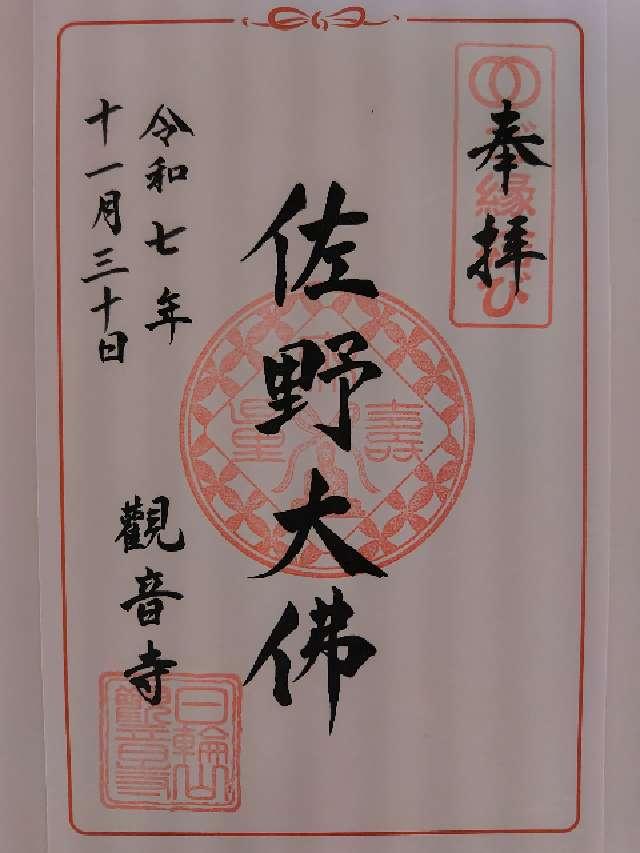 奉拝
縁結び
佐野大佛
壽
量
令和七年
十一月三十日
觀音寺
日輪山
觀音寺